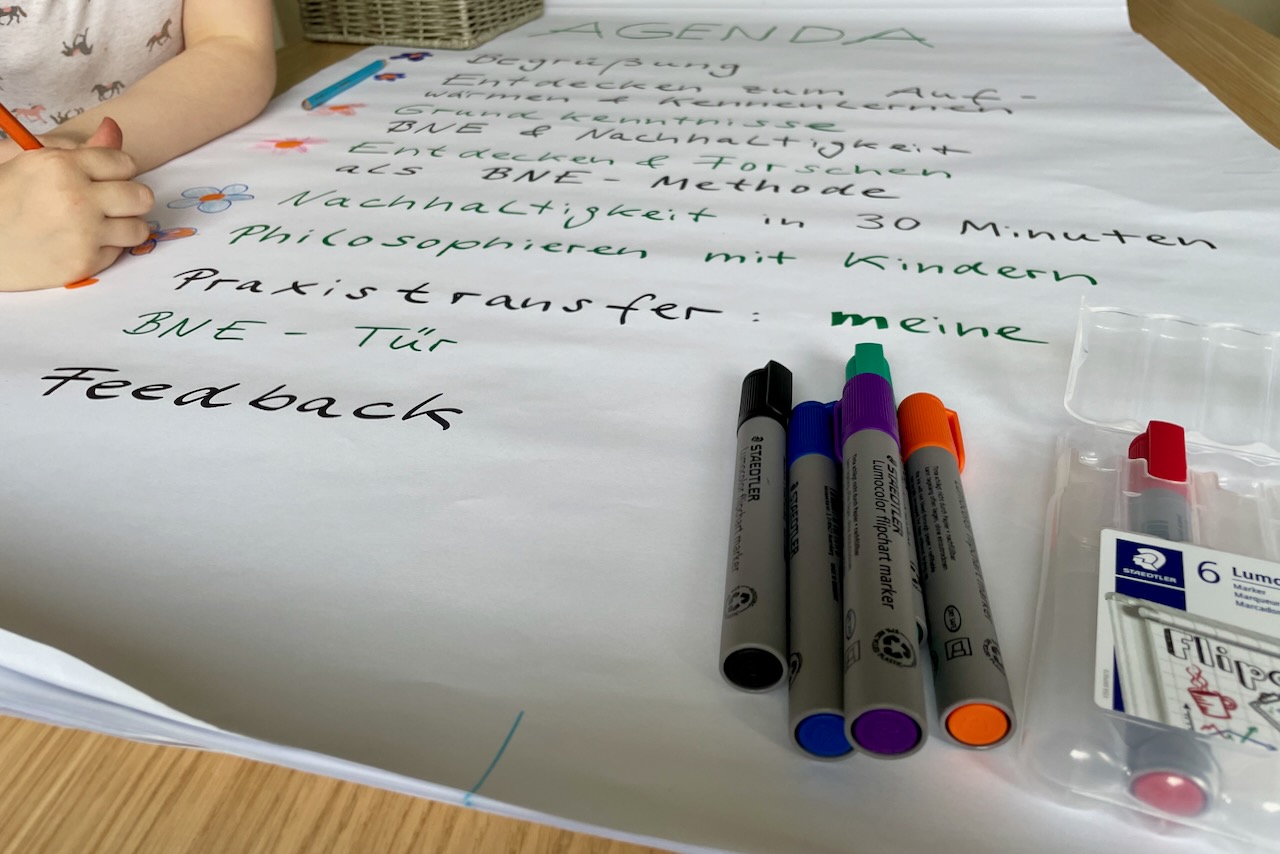 AGENDA
Begrüßung
Entdecken zum Auf-
wärmen & Kennenlernen
Grundkenntnisse
BNE & Nachhaltigkeit
Entdecken & Forschen
als BNE-Methode
Nachhaltigkeit in 30 Minuten
Philosophieren mit Kindern
Praxistransfer: meine
BNE-Tür
Feedback
STAEDTLER
Lumocolor flipchart marker
STAEDTLER
STAEDTLER
Lumocolor flipchart marker
STAEDTLER
6 Lumo
Marker
Marque
Marcador
Flipc